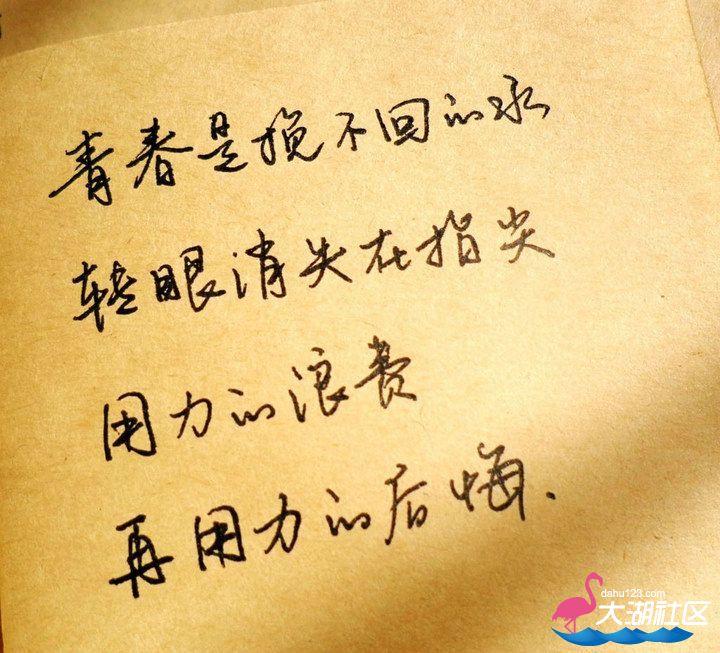 青春是挽不回的水
转眼消失在指尖
用力的浪费
再用力的后悔.
dahu123.com
大湖社区